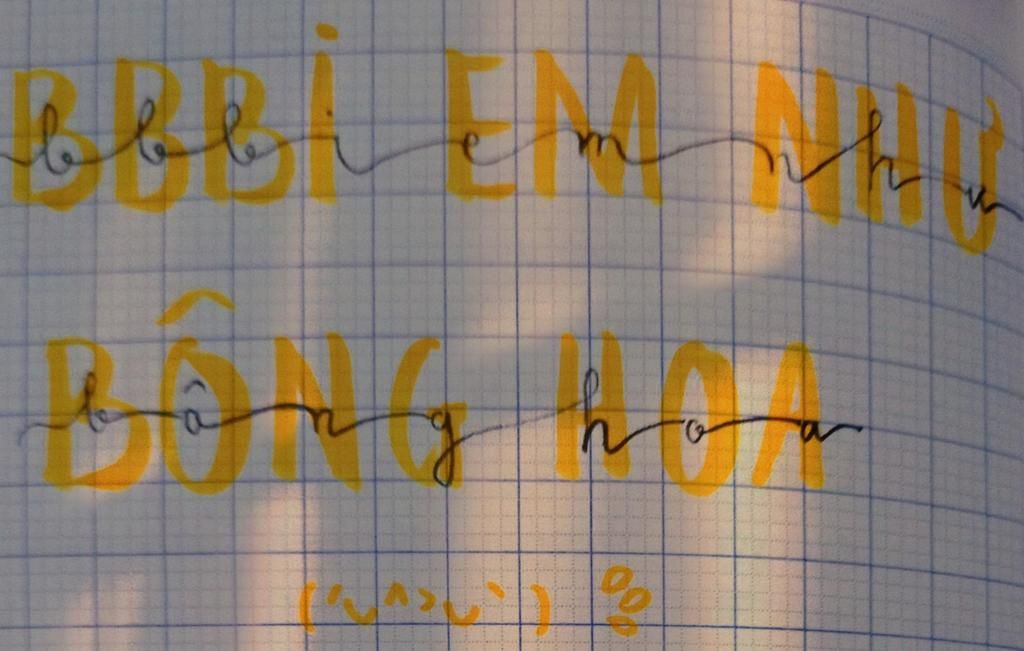 BBBİ EM NHƯ
bbbi em như
BÔNG HOA
bông hoa